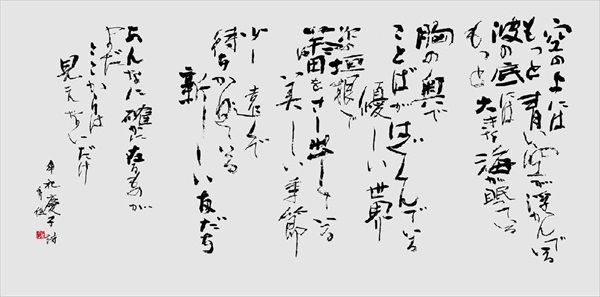 空の上には
もっと青い空が浮かんでいる
波の底には
もっと大きな海が眠っている
胸の奥で
ことばがはぐくんでいる
優しい世界
次の垣根で
蕾をさし出している
美しい季節
少し遠くで
待ちかねている
新しい友だち
あんなに確かに在るものが
まだ
ここからは
見えないだけ
牟礼慶子 詩